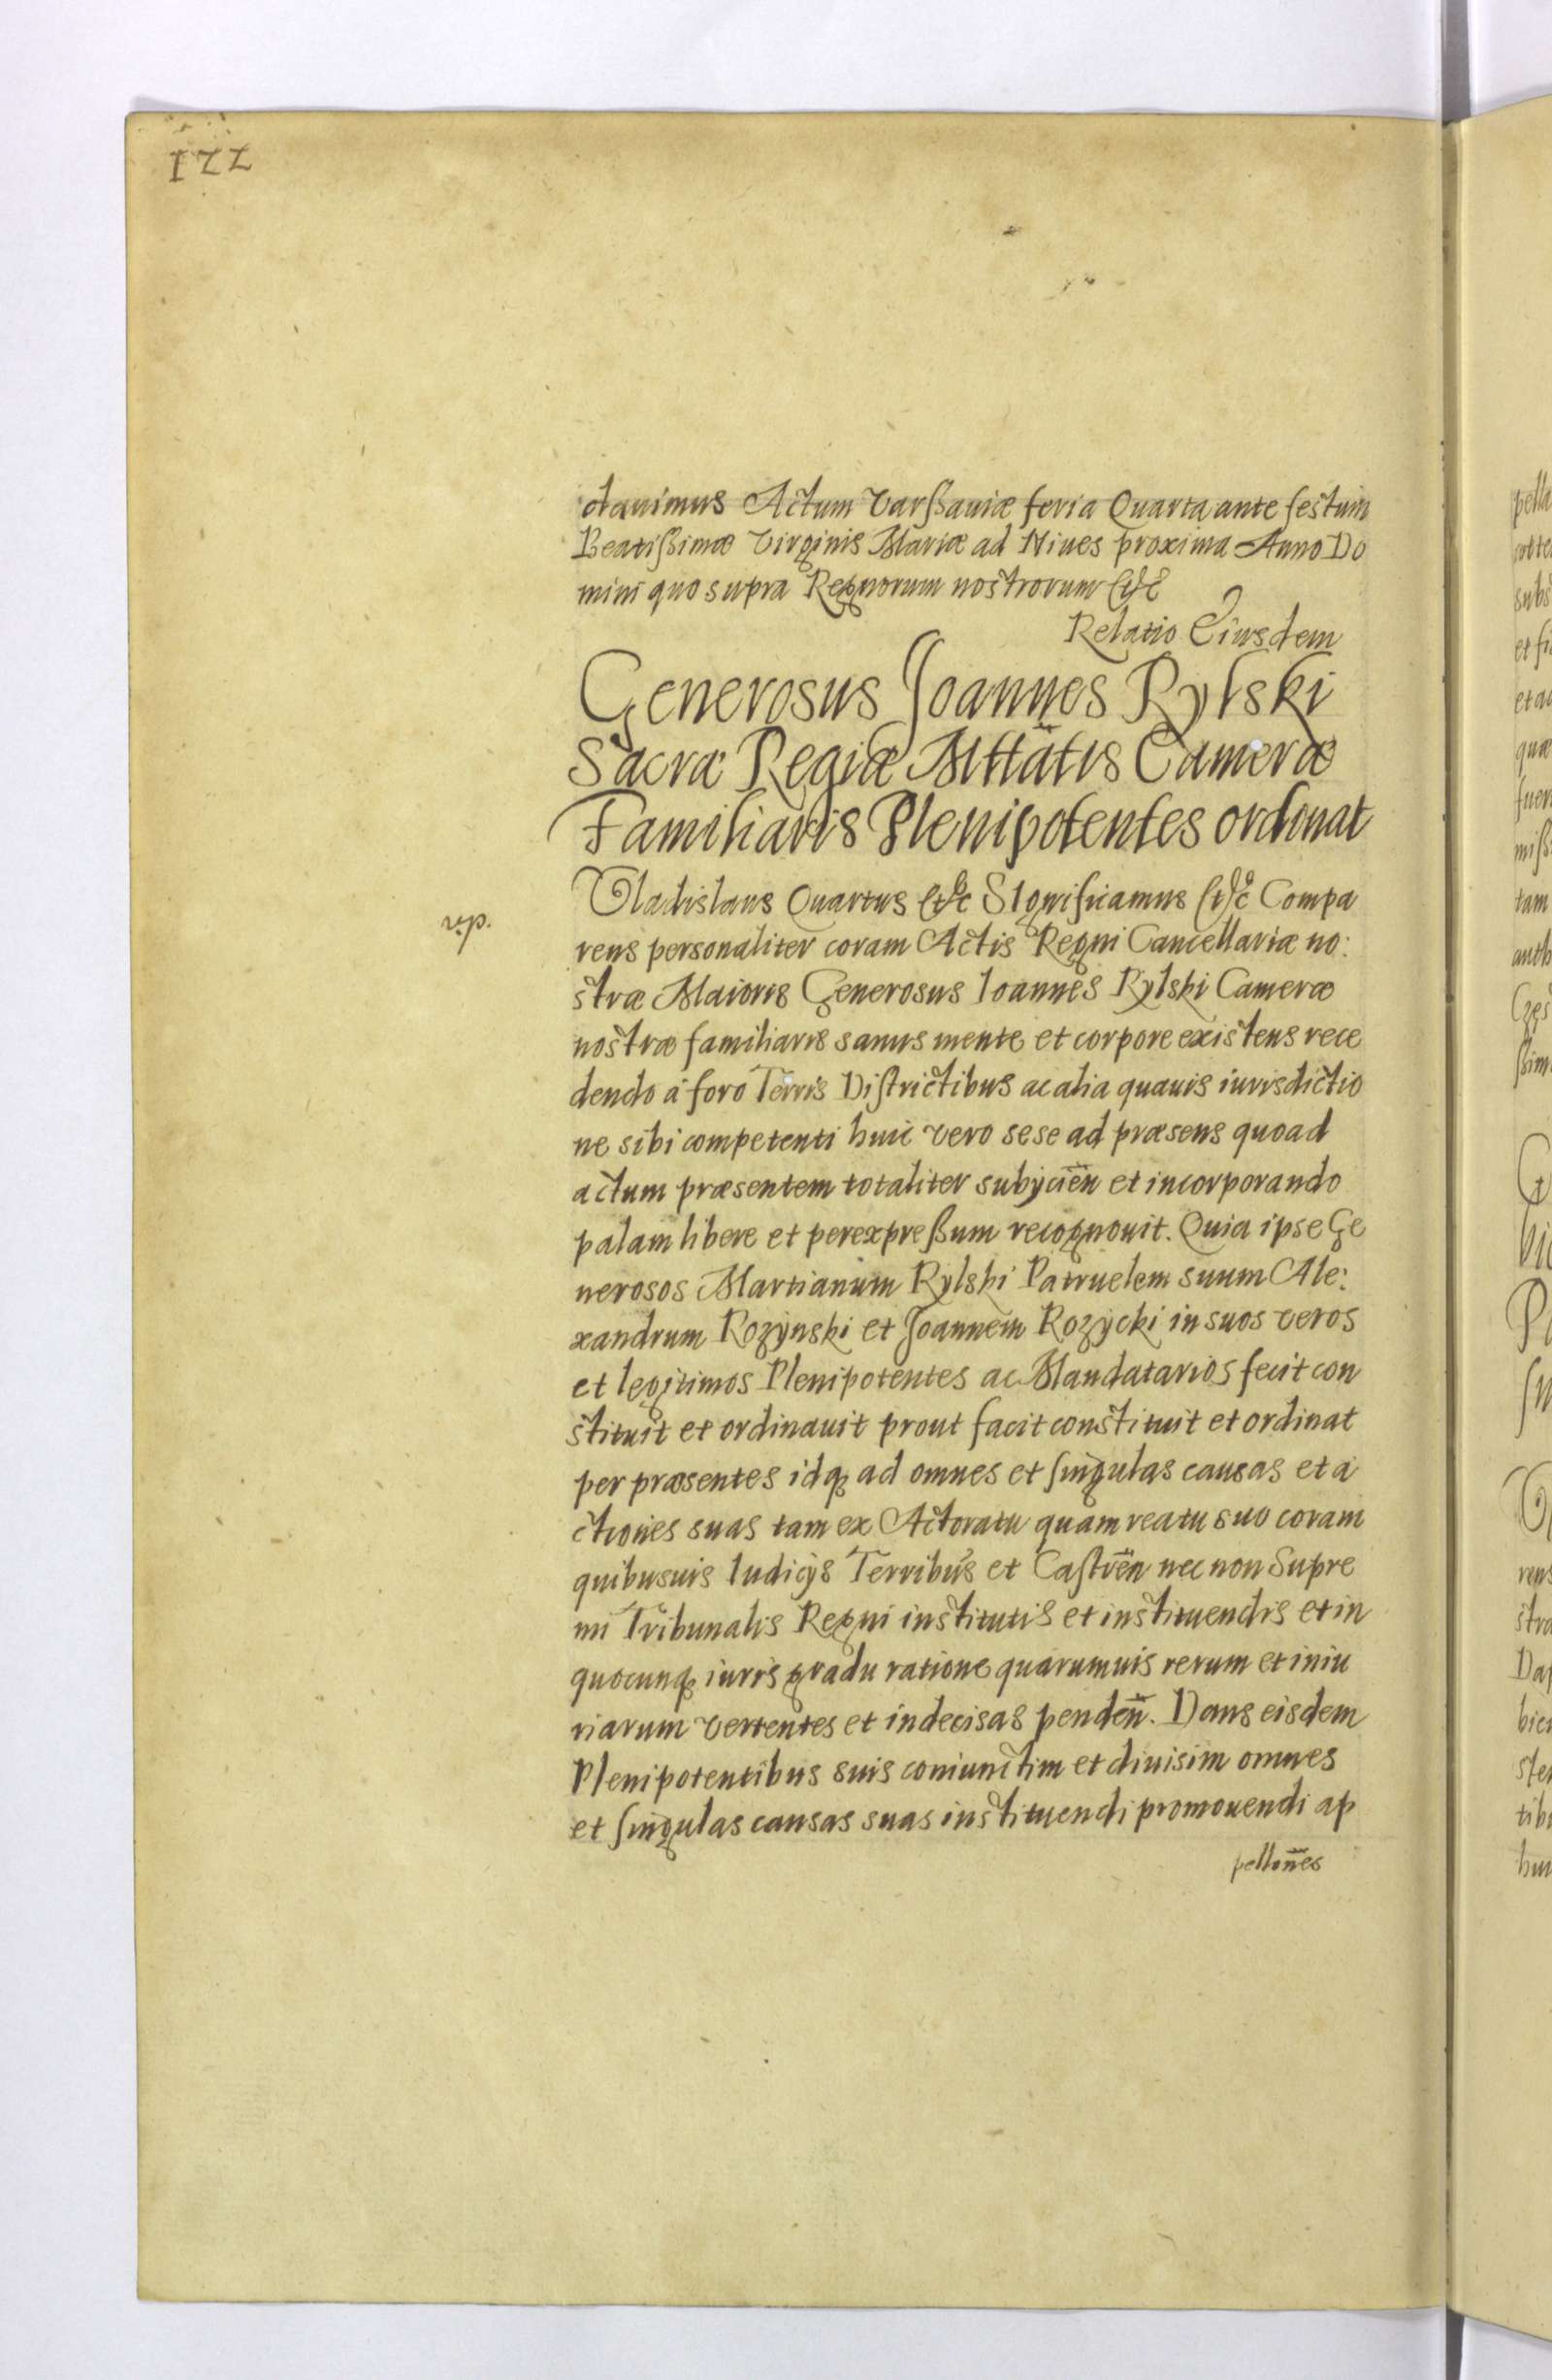 122
dauimus Actum Varßauiæ feria Quarta ante festum
Beatißimæ Virginis Mariæ ad Niues proxima Anno Do
mini quo supra Regnorum nostrorum &c
Relatio Eiusdem
Generosus Joannes Rylski
Sacræ Regiæ Mttātis Cameræ
Familiaris Plenipotentes ordinat
Vladislaus Quartus &c Significamus &c Compa
rens personaliter coram Actis Regni Cancellariæ no:
stræ Maioris Generosus Ioannes Rylski Cameræ
nostræ familiaris sanus mente et corpore existens rece
dendo à foro Terris Districtibus ac alia quauis iurisdictio
ne sibi competenti huic vero sese ad præsens quoad
actum præsentem totaliter subÿcien̄ et incorporando
palam libere et per expreßum recognouit. Quia ipse Ge
nerosos Martianum Rylski Patruelem suum Ale:
xandrum Rozynski et Joannem Rozycki in suos veros
et legitimos Plenipotentes ac Mandatarios fecit con
stituit et ordinauit prout facit constituit et ordinat
per præsentes idq ad omnes et singulas causas et a
ctiones suas tam ex Actoratu quam reatu suo coram
quibusuis Iudicÿs Terribus et Castren̄ nec non Supre
mi Tribunalis Regni institutis et instituendis et in
quocunq iuris gradu ratione quarumuis rerum et iniu
riarum vertentes et indecisas penden̄. Dans eisdem
Plenipotentibus suis coniunctim et diuisim omnes
et singulas causas suas instituendi promouendi ap
pellon̄es